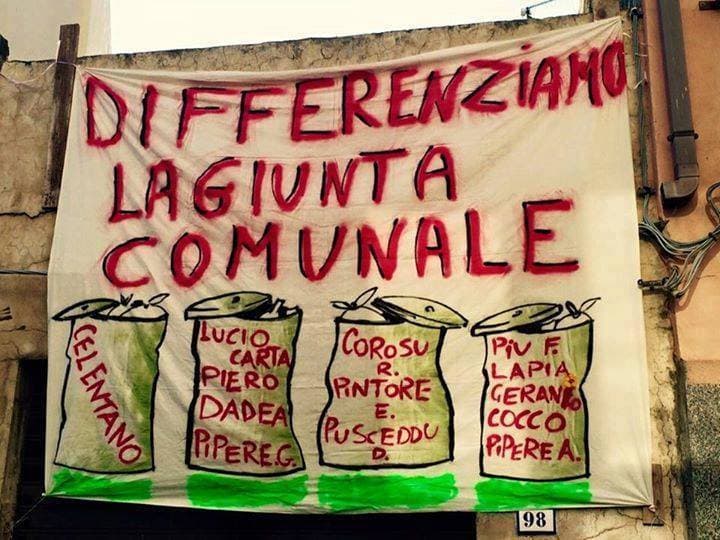 DIFFERENZIAMO
LA GIUNTA
COMUNALE
CELENTANO
LUCIO
CARTA
PIERO
DADEA
PIPERE.G.
COROSU
R.
PINTORE
E.
PUSCEDDU
D.
PIU F.
LAPIA
GERANIO
COCCO
PIPERE A.
98